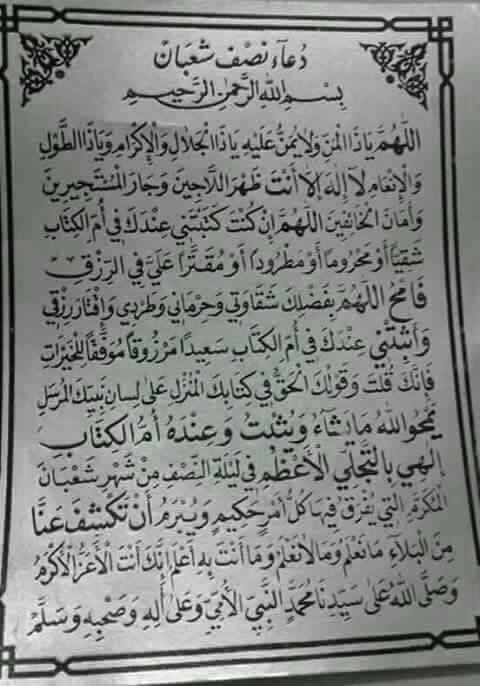 دُعَاءِ نِصْف شَعْبَانْ
بِسْمِ اللهِ الرَّحْمٰنِ الرَّحِيمِ
اَللّٰهُمَّ يَاذَا الْمَنِّ وَلَا يُمَنُّ عَلَيْهِ يَاذَا الْجَلَالِ وَالْإِكْرَامِ وَيَاذَا الطَّوْلِ
وَالْإِنْعَامِ لَا إِلٰهَ إِلَّا أَنْتَ ظَهْرَ اللَّاجِينَ وَجَارَ الْمُسْتَجِيرِينَ
وَأَمَانَ الْخَائِفِينَ اللّٰهُمَّ إِنْ كُنْتَ كَتَبْتَنِي عِنْدَكَ فِي أُمِّ الْكِتَابِ
شَقِيًّا أَوْ مَحْرُومًا أَوْ مَطْرُودًا أَوْ مُقَتَّرًا عَلَيَّ فِي الرِّزْقِ
فَامْحُ اللّٰهُمَّ بِفَضْلِكَ شَقَاوَتِي وَحِرْمَانِي وَطَرْدِي وَإِقْتَارَ رِزْقِي
وَأَثْبِتْنِي عِنْدَكَ فِي أُمِّ الْكِتَابِ سَعِيدًا مَرْزُوقًا مُوَفَّقًا لِلْخَيْرَاتِ
فَإِنَّكَ قُلْتَ وَقَوْلُكَ الْحَقُّ فِي كِتَابِكَ الْمُنْزَلِ عَلَى لِسَانِ نَبِيِّكَ الْمُرْسَلِ
يَمْحُو اللهُ مَا يَشَاءُ وَيُثْبِتُ وَعِنْدَهُ أُمُّ الْكِتَابِ
إِلٰهِي بِالتَّجَلِّي الْأَعْظَمِ فِي لَيْلَةِ النِّصْفِ مِنْ شَهْرِ شَعْبَانَ
الْمُكَرَّمِ الَّتِي يُفْرَقُ فِيهَا كُلُّ أَمْرٍ حَكِيمٍ وَيُبْرَمُ أَنْ تَكْشِفَ عَنَّا
مِنَ الْبَلَاءِ مَا نَعْلَمُ وَمَا لَا نَعْلَمُ وَمَا أَنْتَ بِهِ أَعْلَمُ إِنَّكَ أَنْتَ الْأَعَزُّ الْأَكْرَمُ
وَصَلَّى اللهُ عَلَى سَيِّدِنَا مُحَمَّدٍ النَّبِيِّ الْأُمِّيِّ وَعَلَى آلِهِ وَصَحْبِهِ وَسَلَّمْ